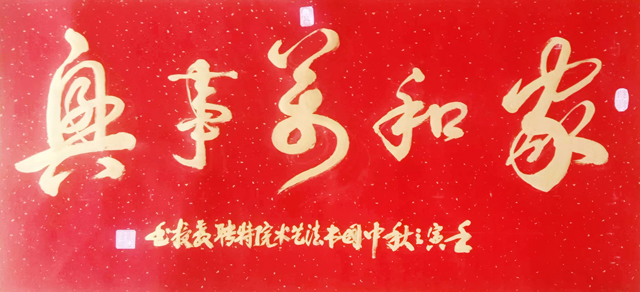 家和萬事興
壬寅之秋中國书法艺术院特聘教授